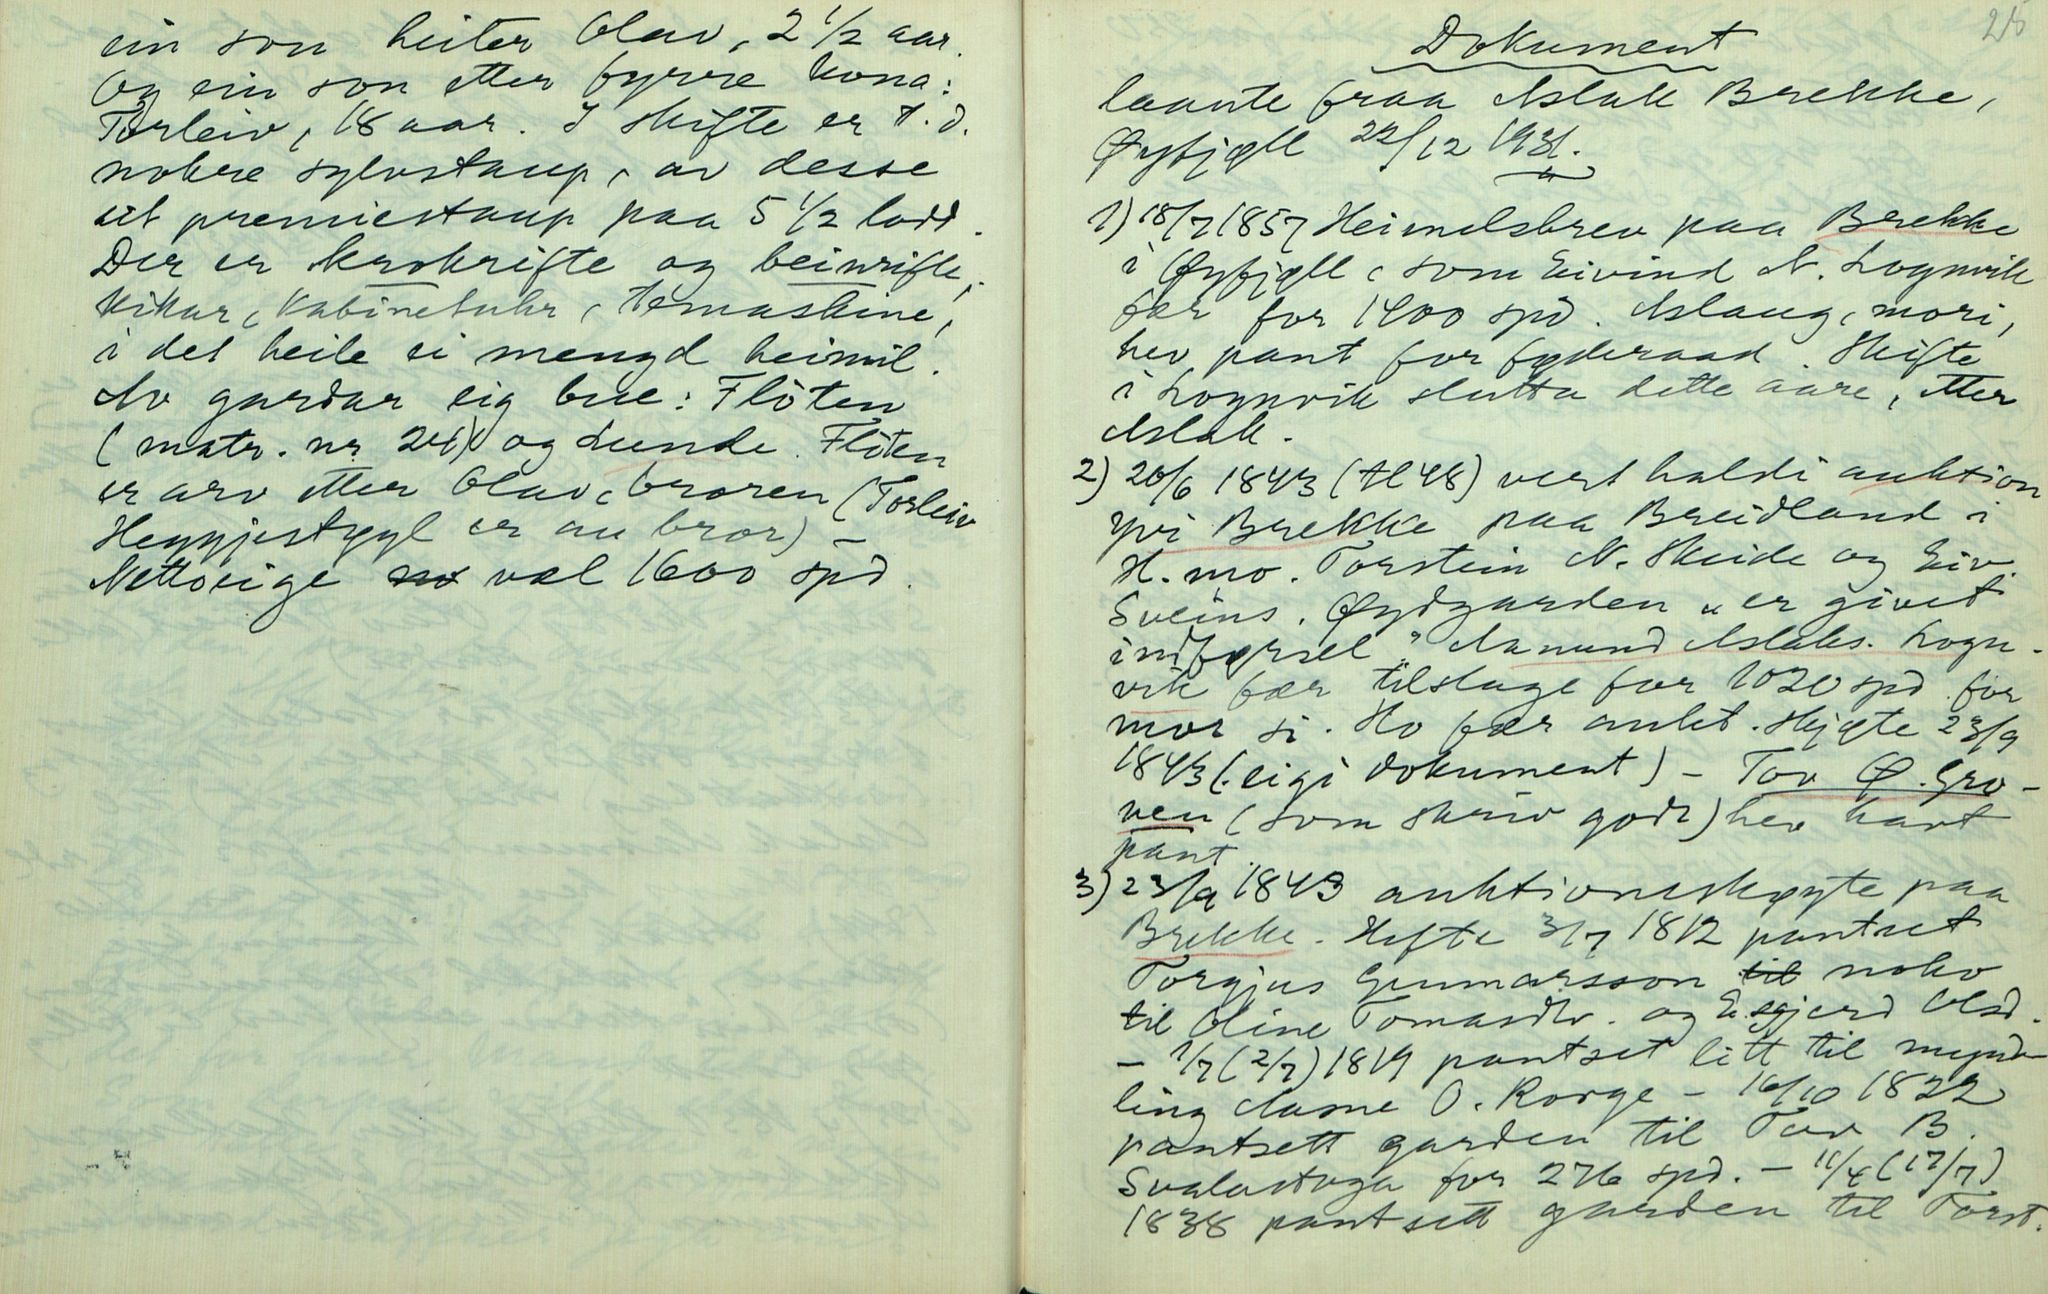 ein son heiter Olav, 2 1/2 aar.
Og ein son etter fyrre kona:
Torleiv, 18 aar. I skifte er t.d.
nokre sylvstaup, av desse
eit premiestaup paa 5 1/2 lodd.
Der er krokrifte og beinrifle,
kikar, kabinetuhr, temaskine,
i det heile ei mengd heimil.
Av gardar eig bue: Flöten
(matr. nr 24) og Lunde. Flöten
er arv etter Olav, broren (Torleiv
Heggjestyyl er au bror) –
Nettoeige val 1600 spd.
25
Dokument
laante fraa Aslak Brekke,
Øyfjell 22/12 1931.
1) 18/7 1857 Heimelsbrev paa Brekke
i Øyfjell, som Eivind A. Lognvik
fær for 1400 spd. Aslaug, mori,
hev pant for fyderaad. Skifte
i Lognvik slutta dette aare, etter
Aslak.
2) 26/6 1843 (Al 48) vert haldi auktion
yvi Brekke paa Breidland i
H. mo. Torstein N. Skeide og Eiv.
Sveins. Øydgarden "er givet
indførsel". Aamund Aslaks. Logn-
vik fær tilslage for 1020 spd for
mor si. Ho fær aukt. skjøte 23/9
1843 (. eigi dokument) – Tov Ø. Gro-
ven (som skriv godt) hev havt
pant.
3) 23/9 1843 auktionsskøyte paa
Brekke. Hefte 3/7 1812 pantset
Torgjus Gunnarsson til nokv
til Oline Tomasdtr. og E. sgjerd Olsd.
– 1/7 (2/7) 1819 pantset litt til mynd-
ling Aasne O. Rorge – 16/10 1822
pantsett garden til Tov B.
Svalastoga for 276 spd. – 11/4 (17/7)
1838 pantsett garden til Torst.